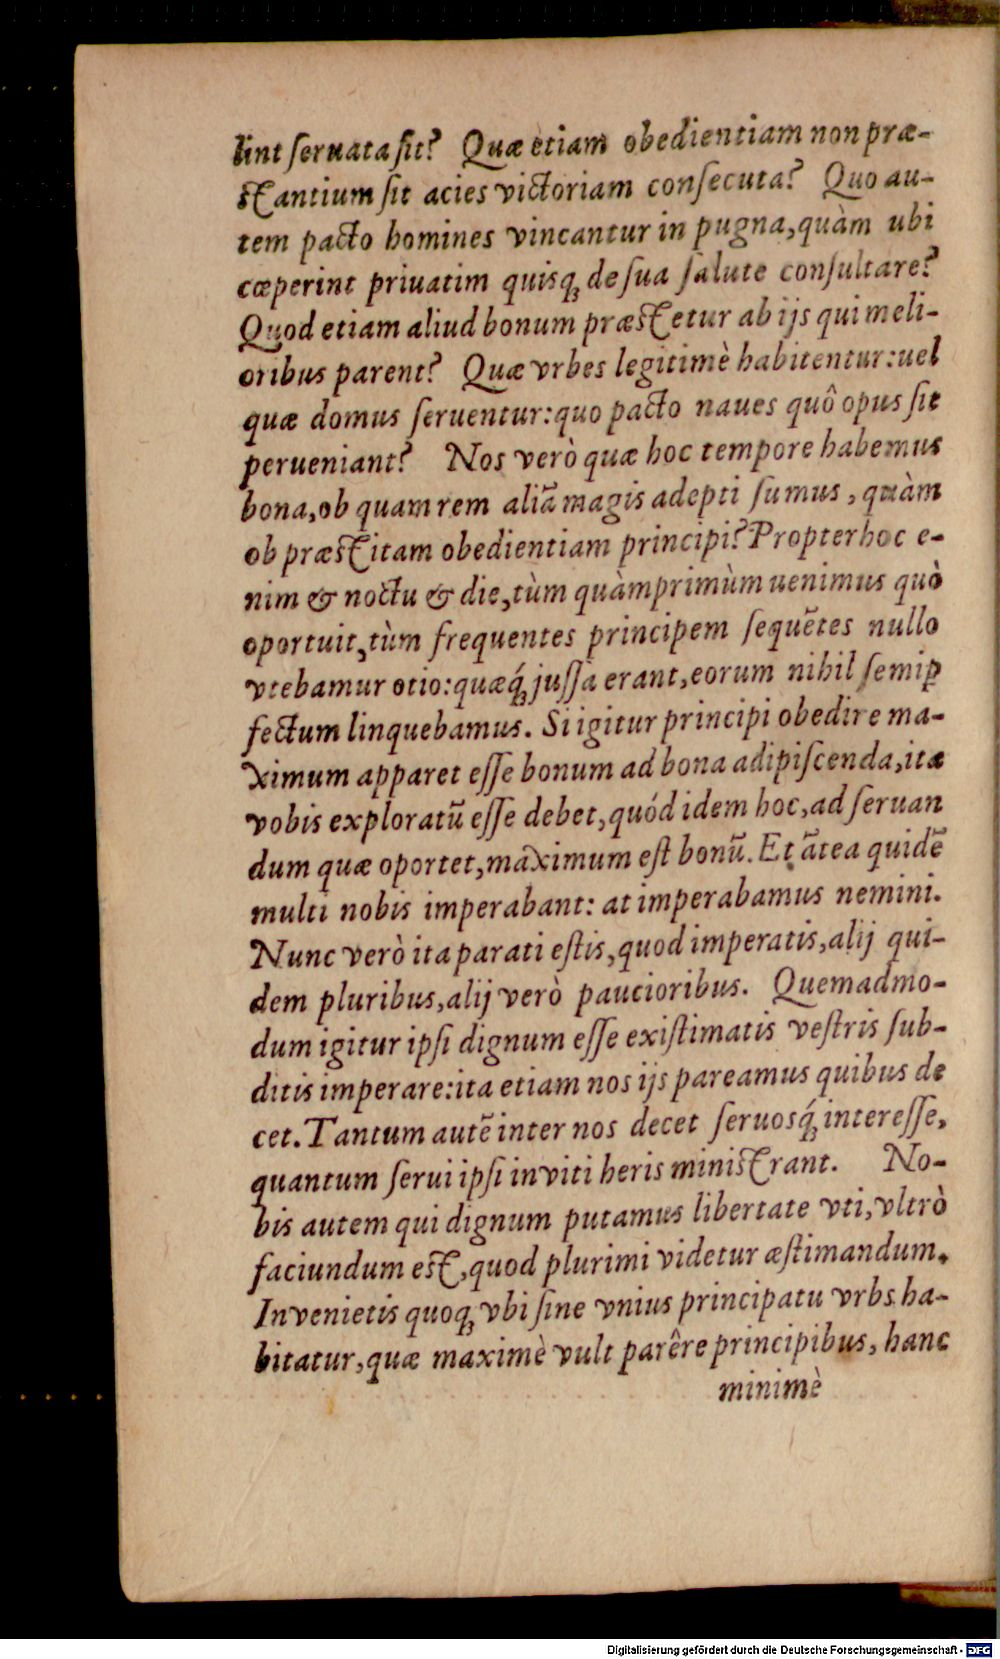 lint ſeruata ſit? Quæ etiam obedientiam non præ-
ſtantium ſit acies victoriam conſecuta? Quo au-
tem pacto homines vincantur in pugna, quàm ubi
cœperint priuatim quisq; de ſua ſalute conſultare?
Quod etiam aliud bonum præſtetur ab ijs qui meli-
oribus parent? Quæ vrbes legitimè habitentur: uel
quæ domus ſeruentur: quo pacto naues quô opus ſit
perueniant? Nos verò quæ hoc tempore habemus
bona, ob quam rem aliã magis adepti ſumus, quàm
ob præſtitam obedientiam principi? Propter hoc e-
nim & noctu & die, tùm quàmprimùm uenimus quò
oportuit, tùm frequentes principem ſequẽtes nullo
vtebamur otio: quæq́; juſſa erant, eorum nihil ſemiꝑ
fectum linquebamus. Si igitur principi obedire ma-
ximum apparet eſſe bonum ad bona adipiſcenda, ita
vobis exploratũ eſſe debet, quód idem hoc, ad ſeruan
dum quæ oportet, maximum eſt bonũ. Et ãtea quidẽ
multi nobis imperabant: at imperabamus nemini.
Nunc verò ita parati eſtis, quod imperatis, alij qui-
dem pluribus, alij verò paucioribus. Quemadmo-
dum igitur ipſi dignum eſſe exiſtimatis veſtris ſub-
ditis imperare: ita etiam nos ijs pareamus quibus de
cet. Tantum autẽ inter nos decet ſeruosq́; intereſſe,
quantum ſerui ipſi inviti heris miniſtrant. No-
bis autem qui dignum putamus libertate vti, vltrò
faciundum eſt, quod plurimi videtur æſtimandum.
Invenietis quoq; vbi ſine vnius principatu vrbs ha-
bitatur, quæ maximè vult parêre principibus, hanc
minimè
Digitalisierung gefördert durch die Deutsche Forschungsgemeinschaft - DFG